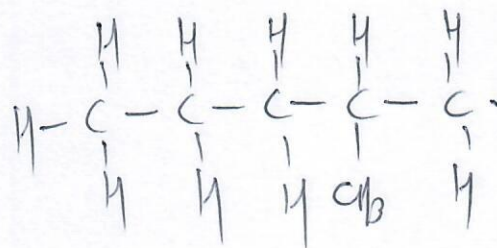 H H H H H
H - C - C - C - C - C -
H H H CH3 H